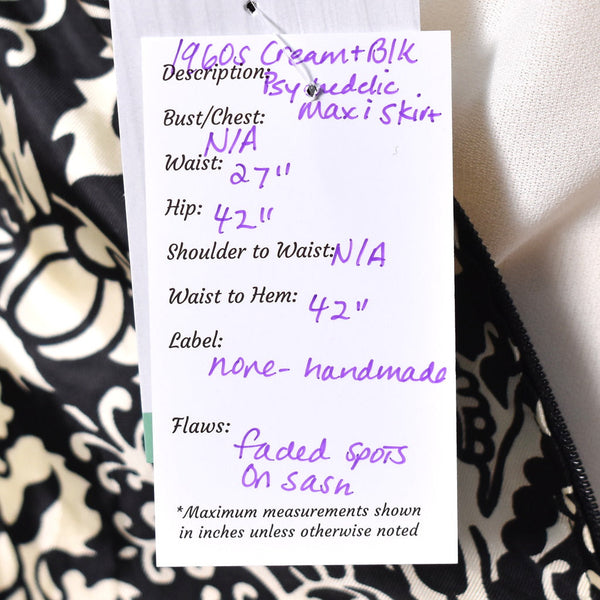 1960s Cream + Blk
Description:
Psychedelic
Maxi Skirt
Bust/Chest:
N/A
Waist: 27"
Hip: 42"
Shoulder to Waist: N/A
Waist to Hem: 42"
Label:
none - handmade
Flaws:
faded spots
on sash
*Maximum measurements shown
in inches unless otherwise noted